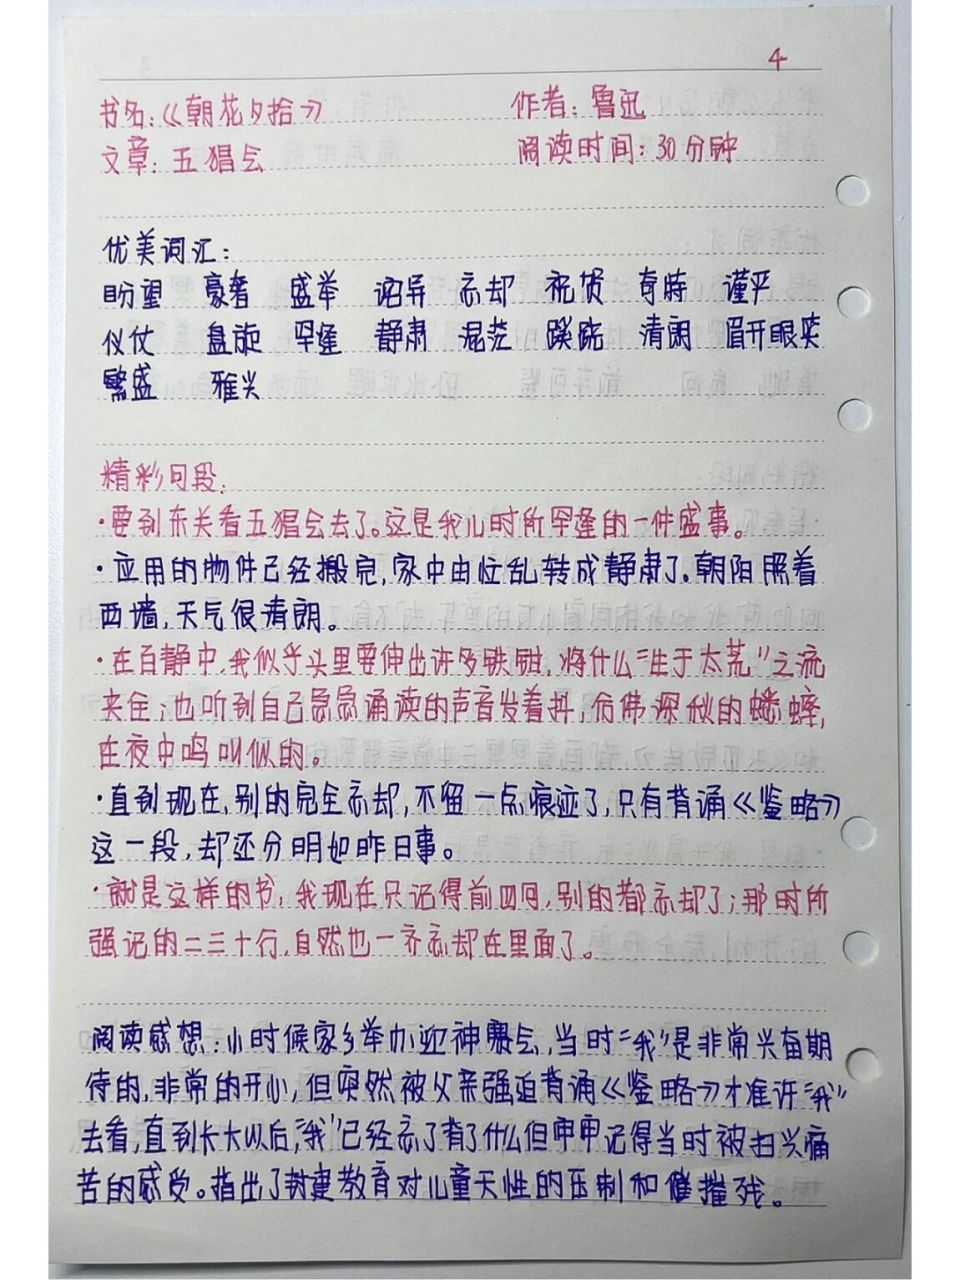 4
书名:《朝花夕拾》 作者:鲁迅
文章:五猖会 阅读时间:30分钟
优美词汇:
盼望 豪奢 盛举 诧异 忘却 祝贺 奇特 谨严
仪仗 盘旋 罕逢 静肃 混茫 蹊跷 清朗 眉开眼笑
繁盛 雅兴
精彩句段:
·要到东关看五猖会去了。这是我儿时所罕逢的一件盛事。
·应用的物件已经搬完,家中由忙乱转成静肃了。朝阳照着
西墙,天气很清朗。
·在百静中,我似乎头里要伸出许多铁钳,将什么“生于太荒”之流
夹住;也听到自己急急诵读的声音发着抖,仿佛深秋的蟋蟀,
在夜中鸣叫似的。
·直到现在,别的完全忘却,不留一点痕迹了,只有背诵《鉴略》
这一段,却还分明如昨日事。
·就是这样的书,我现在只记得前四句,别的都忘却了;那时所
强记的二三十行,自然也一齐忘却在里面了。
阅读感想:小时候家乡举办迎神赛会,当时“我”是非常兴奋期
待的,非常的开心,但突然被父亲强迫背诵《鉴略》才准许“我”
去看,直到长大以后,“我”已经忘了有了什么但 记得当时被扫兴痛
苦的感受。指出了封建教育对儿童天性的压制和 摧残。